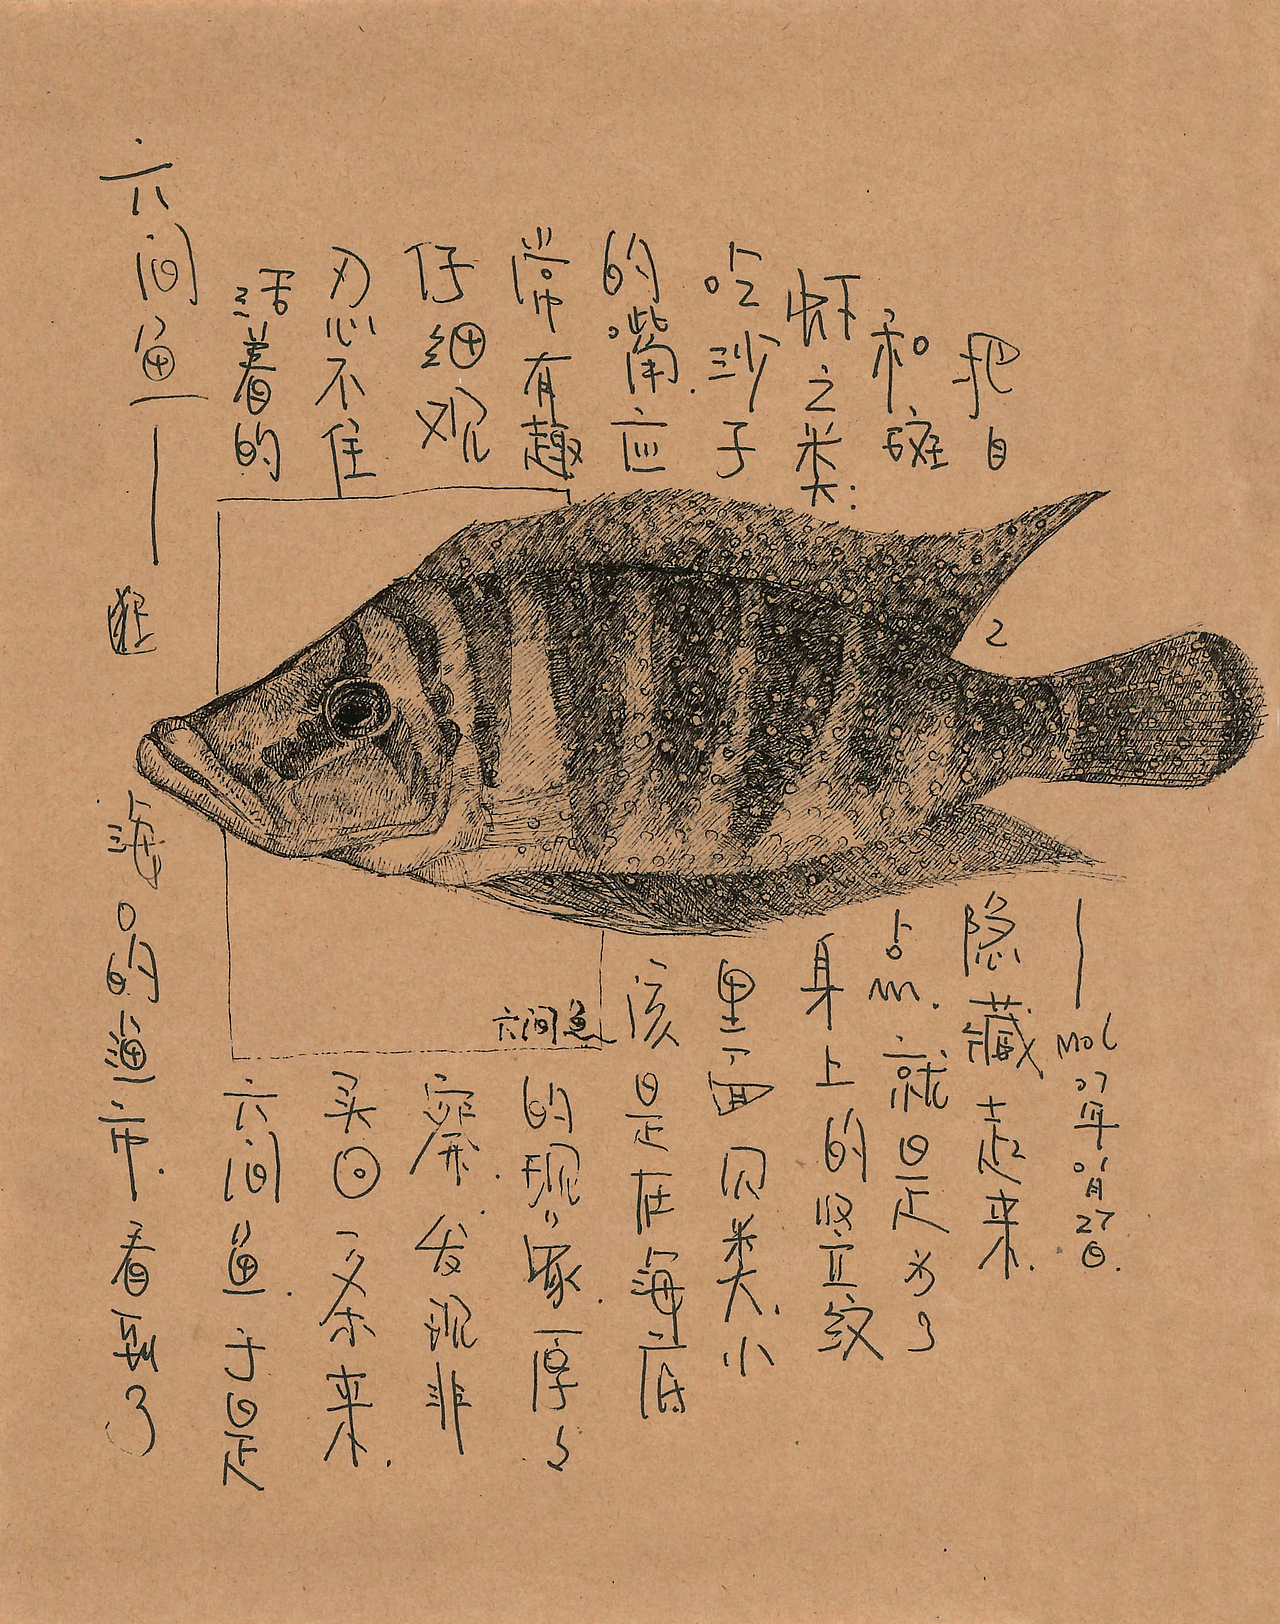 六间鱼——逛海口的渔市.看到了
活着的六间鱼.于是
忍不住买回一条来.
仔细观察.发现非
常有趣的现象.厚厚
的嘴.应该是在海底
吃沙子里面贝类.小
虾之类:身上的竖立纹
和斑点.就是为了
把自己隐藏起来.
—MOL 07年01月27日.
六间鱼